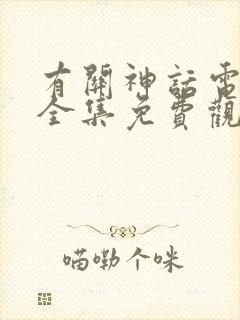 有關神話電
全集免費觀
喵嘞个咪